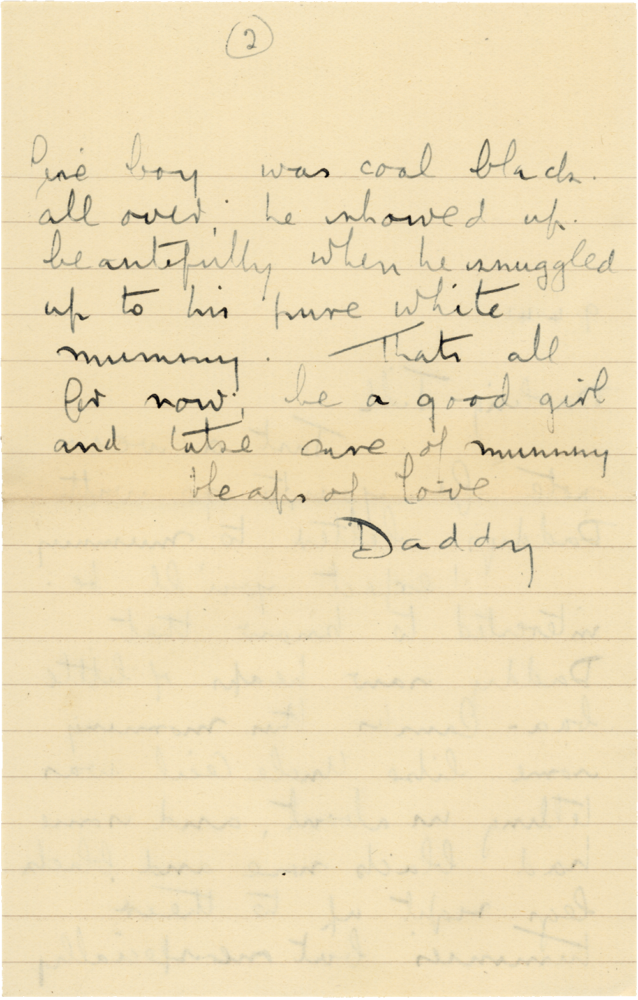 2
boy was coal black.
all over, he showed up.
beautifully when he snuggled
up to his pure white
mummy. Thats all
for now, be a good girl
and take care of mummy
Heaps of love
Daddy